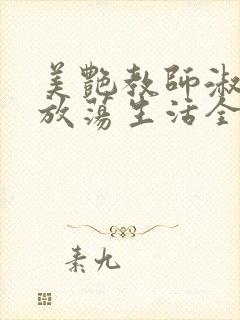 美艷教師淑
放蕩生活全
素九